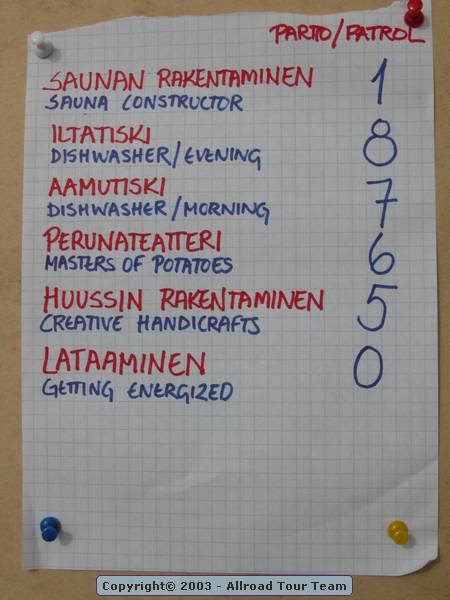 PARTIO/PATROL
SAUNAN RAKENTAMINEN 1
SAUNA CONSTRUCTOR
ILTATISKI 8
DISHWASHER/EVENING
AAMUTISKI 7
DISHWASHER/MORNING
PERUNATEATTERI 6
MASTERS OF POTATOES
HUUSSIN RAKENTAMINEN 5
CREATIVE HANDICRAFTS
LATAAMINEN 0
GETTING ENERGIZED
Copyright© 2003 - Allroad Tour Team